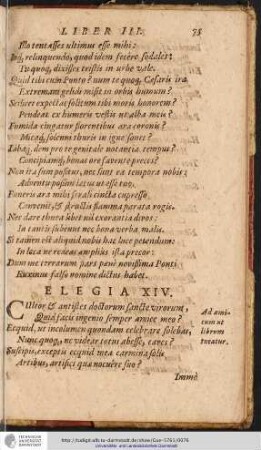 LIBER III. 75
Isto tentasses ultimus esse mihi:
Inq, relinquendo, quod idem fecere sodales:
Tu quoq, dixisses tristis in urbe vale.
Quid tibi cum Ponto? num te quoq, Cæsaris ira
Extremam gelidi misit in orbis humum?
Scilicet expectas solitum tibi moris honorem?
Pendeat ex humeris vestis ut alba meis?
Fumida cingatur florentibus ara coronis?
Micaq, solemni thuris in igne sonet?
Libaq, dem pro te genitale notantia tempus?
Concipiamq, bonas ore favente preces?
Non ita sum positus, nec sunt ea tempora nobis:
Adventu possim lætus ut esse tuo.
Funeris ara mihi ferali cincta cupresso
Convenit, & structis flamma parata rogis.
Nec dare thura libet nil exorantia divos:
In tantis subeunt nec bona verba malis.
Si tamen est aliquid nobis hac luce petendum:
In loca ne redeas amplius ista precor:
Dum me terrarum pars pene novissima Ponti
Euxinus falso nomine dictus habet.
ELEGIA XIV.
CUltor & antistes doctorum sancte virorum,
Quid facis ingenio semper amice meo?
Ecquid, ut incolumem quondam celebrare solebas,
Nunc quoq, ne videar totus abesse, caves?
Suscipis, exceptis ecquid mea carmina solis
Artibus, artifici quæ nocuere suo?
Immò
Ad ami-
cum ut
librum
tueatur.
http://tudigit.ulb.tu-darmstadt.de/show/Gue-5763/0076